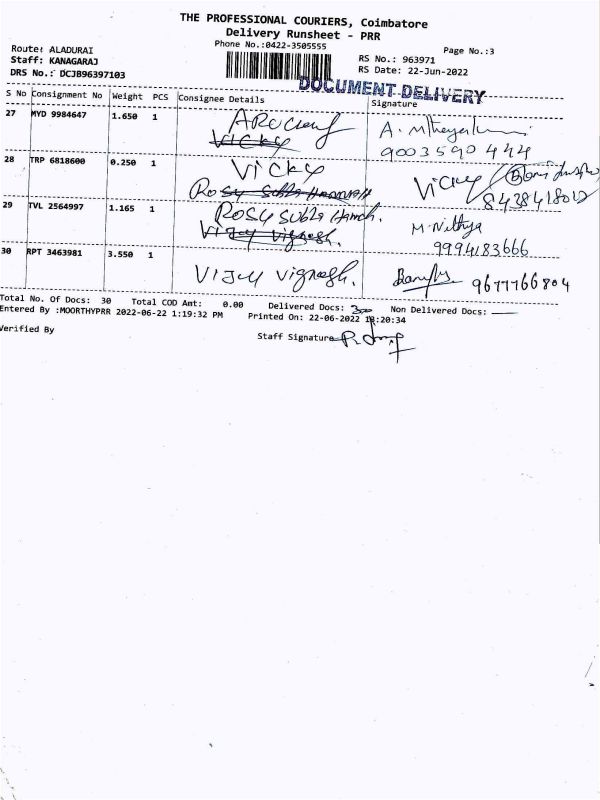 THE PROFESSIONAL COURIERS, Coimbatore
Delivery Runsheet - PRR
Phone No.:0422-3505555
Page No.:3
Route: ALADURAI
Staff: KANAGARAJ
DRS No.: DCJB96397103
RS No.: 963971
RS Date: 22-Jun-2022
DOCUMENT DELIVERY
S No Consignment No Weight PCS Consignee Details Signature
27 MYD 9984647 1.650 1
Vicky
9003590444
28 TRP 6818600 0.250 1 Vicky Vicky
Rosy Subla Hannah
8428418012
29 TVL 2564997 1.165 1 Rosy Subla Hanah. M. Nithya
Vijay Vignesh. 9994183666
30 RPT 3463981 3.550 1 Vijay Vignesh. 9677766804
Total No. Of Docs: 30 Total COD Amt: 0.00 Delivered Docs: Non Delivered Docs:
Entered By :MOORTHYPRR 2022-06-22 1:19:32 PM Printed On: 22-06-2022 13:20:34
Verified By
Staff Signature